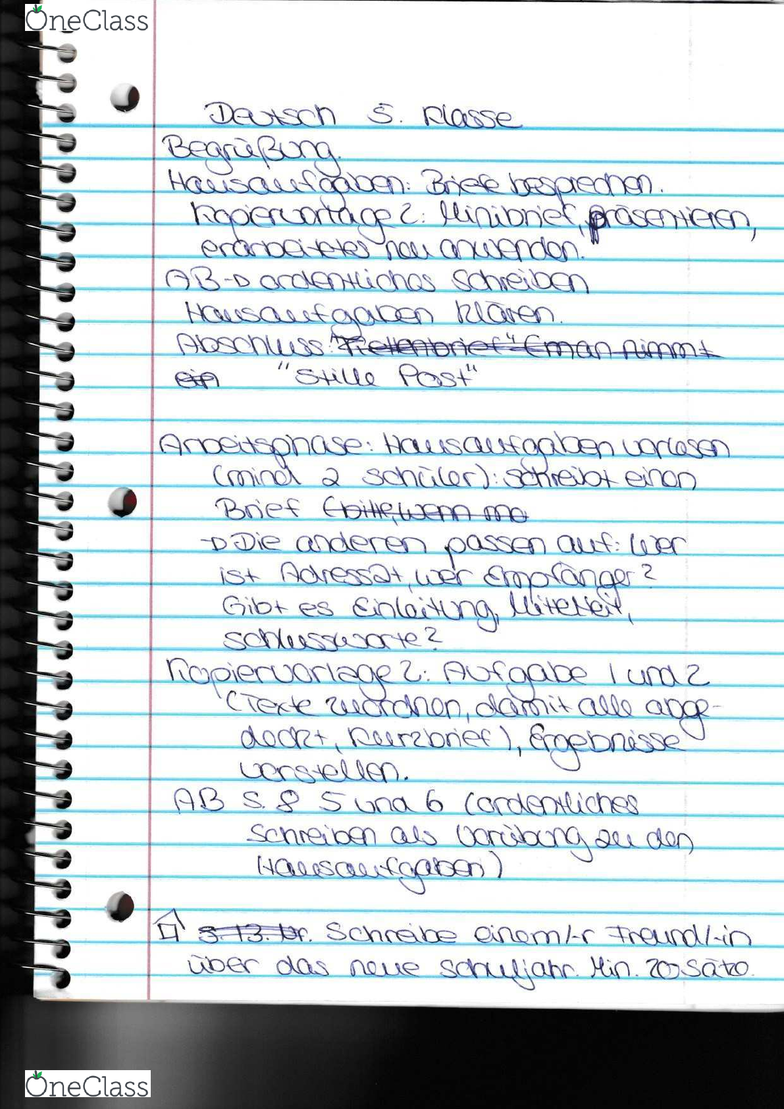 OneClass
Deutsch 5. Klasse
Begrüßung.
Hausaufgaben: Briefe besprechen.
Kopiervorlage 2: Minibrief, präsentieren,
erarbeitetes neu anwenden.
AB → ordentliches Schreiben
Hausaufgaben klären.
Abschluss: "Kettenbrief" (man nimmt
ein "Stille Post"
Arbeitsphase: Hausaufgaben vorlesen
(mind 2 Schüler): schreibt einen
Brief (bitte, wenn mo
→ Die anderen passen auf: Wer
ist Adressat, wer Empfänger?
Gibt es Einleitung, Mitteteil,
Schlussworte?
Kopiervorlage 2: Aufgabe 1 und 2
(Texte zuordnen, damit alle abge-
deckt, Kurzbrief), Ergebnisse
vorstellen.
AB S. 8 5 und 6 (ordentliches
Schreiben als Vorübung zu den
Hausaufgaben)
S. 13. Nr. Schreibe einem/-r Freund/-in
über das neue Schuljahr. Min. 20 Sätze.
OneClass